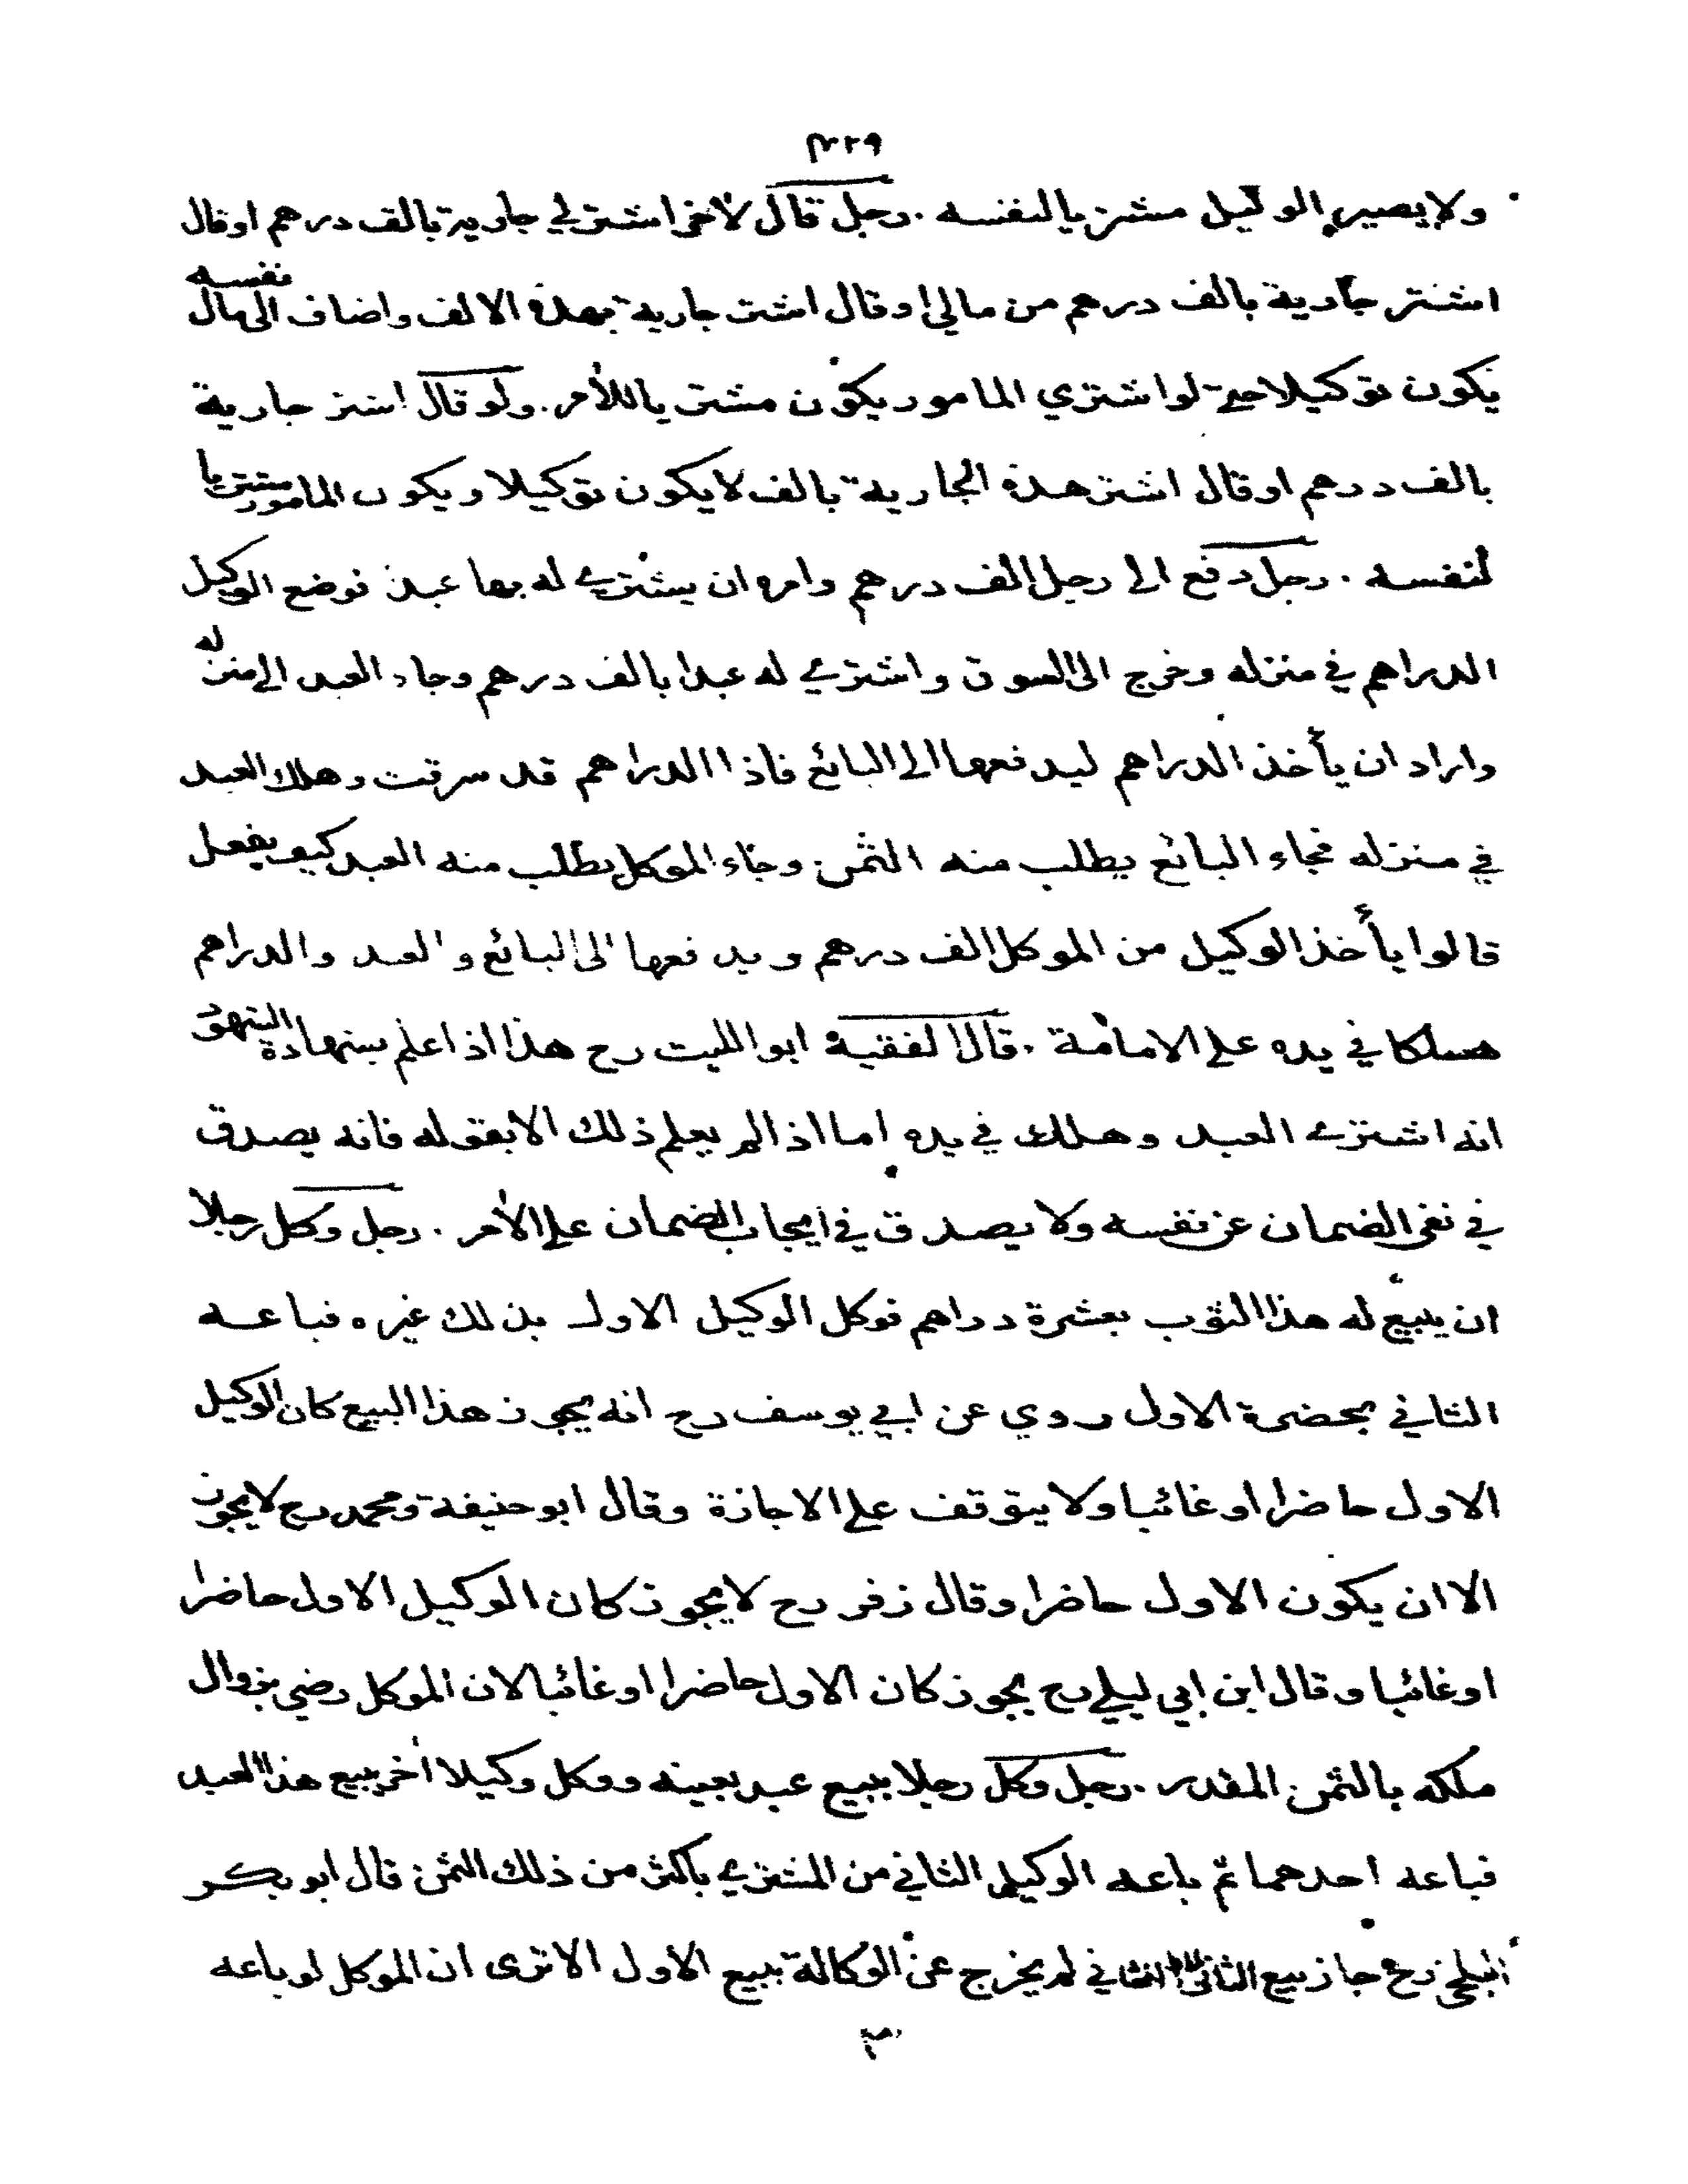 ٣٢٩
ولا يصير الوكيل مشتريا لنفسه . رجل قال لآخر اشتر لي جارية بالف درهم او قال
اشتر جارية بالف درهم من مالي او قال اشتر جارية بهذه الالف واضاف الى مال نفسه
يكون توكيلا حتى لو اشترى المامور يكون مشتريا للآمر . ولو قال اشتر جارية
بالف درهم او قال اشتر هذه الجارية بالف لا يكون توكيلا ويكون المامور مشتريا
لنفسه . رجل دفع الى رجل الف درهم وامره ان يشتري له بها عبدا فوضع الوكيل
الدراهم في منزله وخرج الى السوق واشترى له عبدا بالف درهم وجاء العبد الى منزله
واراد ان يأخذ الدراهم ليدفعها الى البائع فاذا الدراهم قد سرقت وهلك العبد
في منزله فجاء البائع يطلب منه الثمن وجاء الموكل يطلب منه العبد كيف يفعل
قالوا يأخذ الوكيل من الموكل الف درهم ويدفعها الى البائع والعبد والدراهم
هلكا في يده على الامانة . قال الفقيه ابو الليت رح هذا اذا علم بشهادة الشهود
انه اشترى العبد وهلك في يده اما اذا لم يعلم ذلك الا بقوله فانه يصدق
في نفي الضمان عن نفسه ولا يصدق في ايجاب الضمان على الآمر . رجل وكل رجلا
ان يبيع له هذا الثوب بعشرة دراهم فوكل الوكيل الاول بذلك غيره فباعه
الثاني بحضرة الاول روي عن ابي يوسف رح انه يجوز هذا البيع كان الوكيل
الاول حاضرا او غائبا ولا يتوقف على الاجازة وقال ابو حنيفة ومحمد رح لا يجوز
الا ان يكون الاول حاضرا وقال زفر رح لا يجوز كان الوكيل الاول حاضرا
او غائبا وقال ابن ابي ليلى رح يجوز كان الاول حاضرا او غائبا لان الموكل رضي بزوال
ملكه بالثمن المقدر . رجل وكل رجلا ببيع عبد بعينه ووكل وكيلا آخر ببيع هذا العبد
فباعه احدهما ثم باعه الوكيل الثاني من المشتري باكثر من ذلك الثمن قال ابو بكر
البلخي رح جاز بيع الثاني لان الثاني لم يخرج عن الوكالة ببيع الاول الا ترى ان الموكل لو باعه